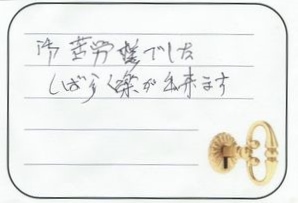 御苦労様でした
しばらく楽が出来ます